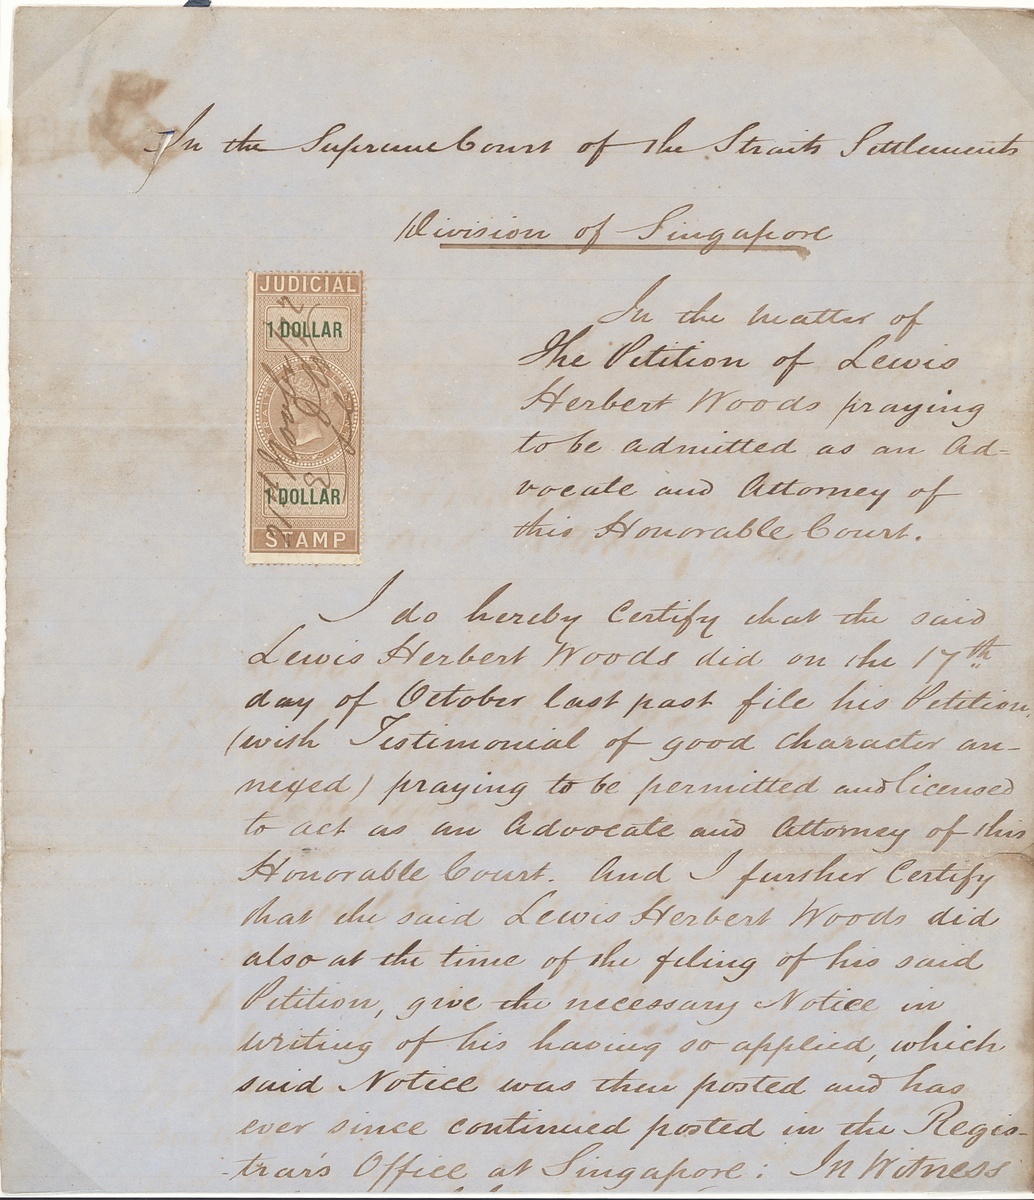 In the Supreme Court of the Straits Settlements
Division of Singapore
JUDICIAL
1 DOLLAR
1 DOLLAR
STAMP
In the matter of
the Petition of Lewis
Herbert Woods praying
to be admitted as an Ad-
vocate and Attorney of
this Honorable Court.
I do hereby Certify that the said
Lewis Herbert Woods did on the 17th
day of October last past file his Petition
(with Testimonial of good Character an-
nexed) praying to be permitted and licensed
to act as an Advocate and Attorney of this
Honorable Court. And I further Certify
that the said Lewis Herbert Woods did
also at the time of the filing of his said
Petition, give the necessary Notice in
writing of his having so applied, which
said Notice was then posted and has
ever since continued posted in the Regis-
trar's Office at Singapore: In Witness